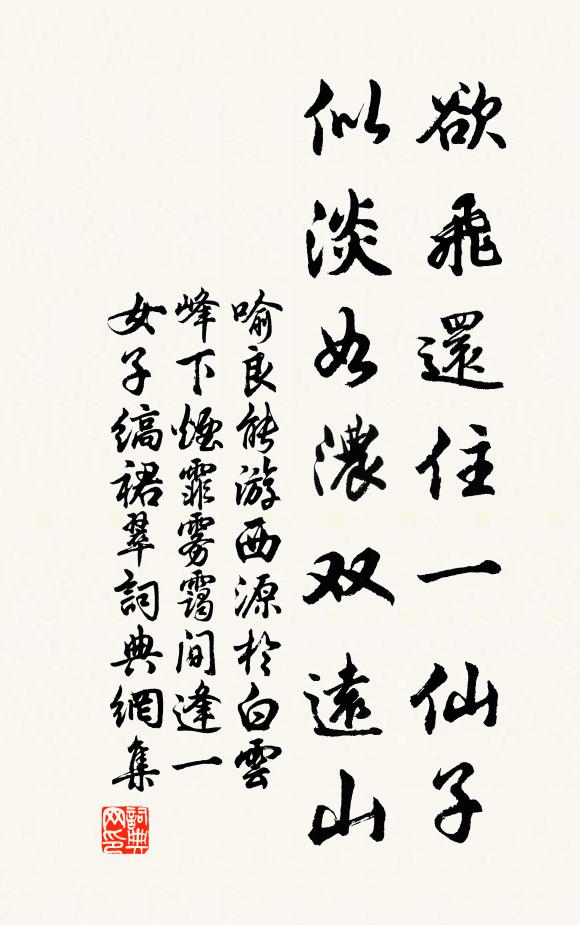 欲飛還住一仙子
似淡如濃双遠山
喻良能游西源於白雲
峰下煙霏雾靄間逢一
女子縞裙翠詞典網集
詞典
网印